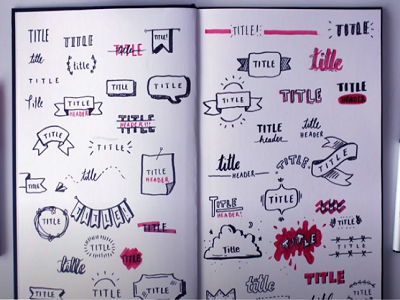 TITLE
TITLE
TITLE
TITLE!
title
title
TITLE
TITLE
TITLE
Title
TITLE
HEADER
TITLE
HEADER!!!
TITLE
TITLE
title
TITLE
HEADER
TITLE
TITLE
TITLE
TITLE
TITLE
title
TITLE
TITLE
TITLE!
TITLE
TITLE
title
TITLE
TITLE
TITLE
HEADER
TITLE
header
title
HEADER
title
HEADER
TITLE
TITLE
TITLE
HEADER!
TITLE
TITLE
Title
TITLE
TITLE
title
TITLE
TITLE